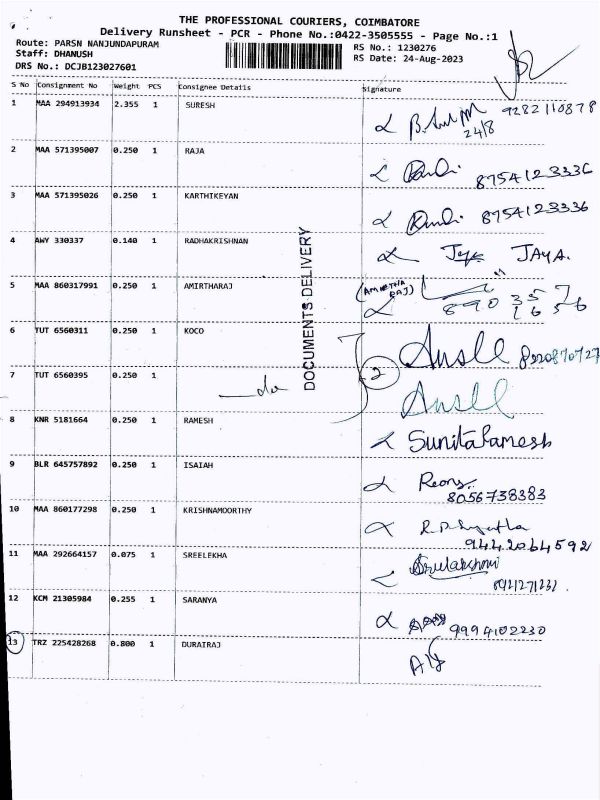 THE PROFESSIONAL COURIERS, COIMBATORE
Delivery Runsheet - PCR - Phone No.:0422-3505555 - Page No.:1
Route: PARSN NANJUNDAPURAM
RS No.: 1230276
Staff: DHANUSH
RS Date: 24-Aug-2023
DRS No.: DCJB123027601
S No Consignment No Weight PCS Consignee Details Signature
1 MAA 294913934 2.355 1 SURESH 9282110878
24/8
2 MAA 571395007 0.250 1 RAJA 8754123336
3 MAA 571395026 0.250 1 KARTHIKEYAN 8754123336
4 AWY 330337 0.140 1 RADHAKRISHNAN JAYA.
DOCUMENTS DELIVERY
5 MAA 860317991 0.250 1 AMIRTHARAJ (AMIRTHA RAJ)
6 TUT 6560311 0.250 1 KOCO
7 TUT 6560395 0.250 1 do 2
8 KNR 5181664 0.250 1 RAMESH SunitaRamesh
9 BLR 645757892 0.250 1 ISAIAH 8056738383
10 MAA 860177298 0.250 1 KRISHNAMOORTHY 9442064592
11 MAA 292664157 0.075 1 SREELEKHA
12 KCM 21305984 0.255 1 SARANYA 9994102230
13 TRZ 225428268 0.800 1 DURAIRAJ